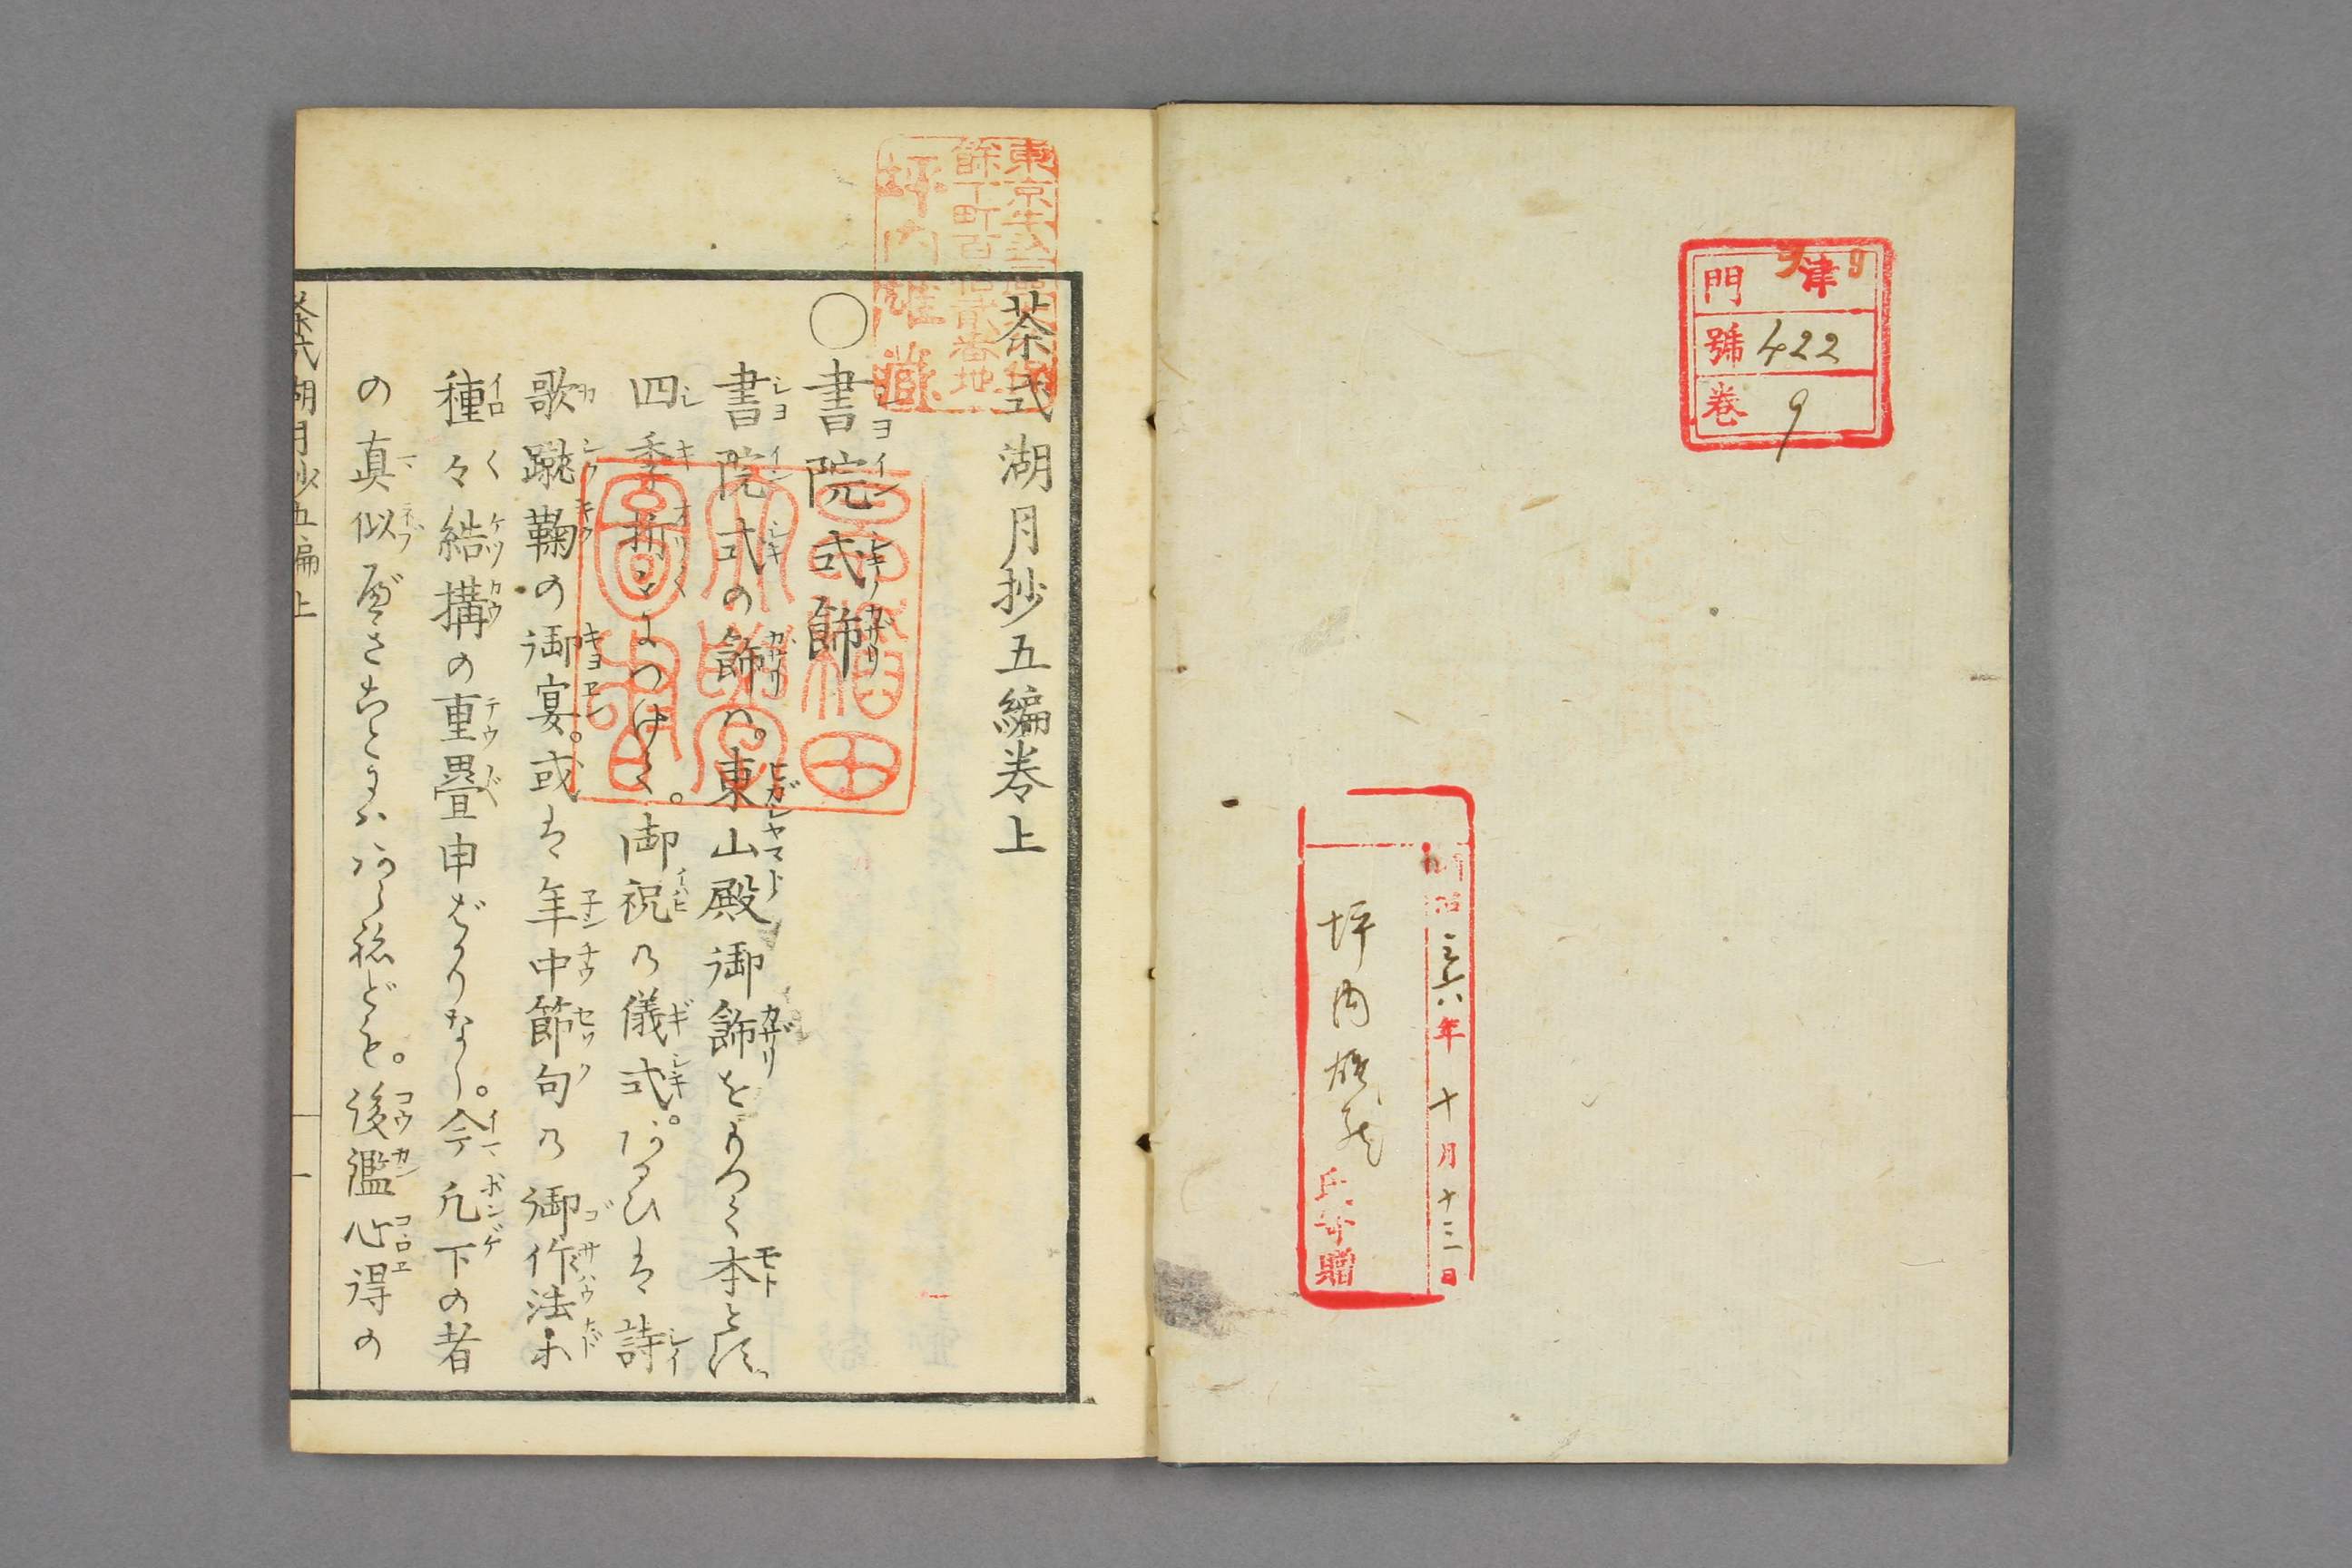 門 津 9
號 422
卷 9
明治三十六年十月十三日
坪内雄蔵氏寄贈
東京牛込區
餘丁町百拾貳番地
坪内雄藏
早稲田
大學
圖書
茶式湖月抄五編巻上
○書院式飾
書院式の飾ハ。東山殿御飾をもつて本とす
四季折々につけて。御祝乃儀式。あるひは詩
歌蹴鞠の御宴。或は年中節句乃御作法等
種々結構の重畳申ばかりなし。今凡下の者
の真似べきことにハあらねども。後濫心得の
茶式湖月抄五編上
一